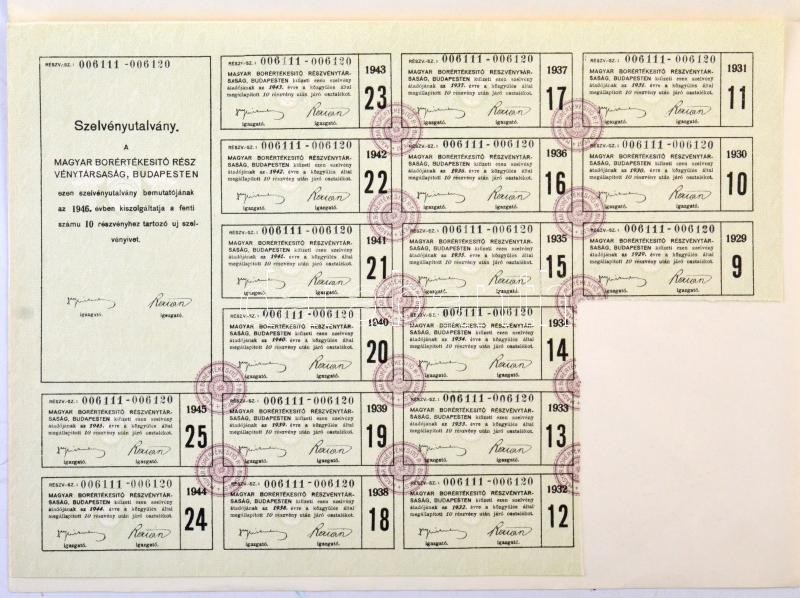 RÉSZV.-SZ.: 006111-006120
Szelvényutalvány.
A
MAGYAR BORÉRTÉKESITŐ RÉSZ
VÉNYTÁRSASÁG, BUDAPESTEN
ezen szelvényutalvány bemutatójának
az 1946. évben kiszolgáltatja a fenti
számu 10 részvényhez tartozó uj szel-
vényivet.
igazgató. igazgató.
RÉSZV.-SZ.: 006111-006120
1943
MAGYAR BORÉRTÉKESITŐ RÉSZVÉNYTÁR-
SASÁG, BUDAPESTEN kifizeti ezen szelvény
átadójának az 1943. évre a közgyülés által
megállapitott 10 részvény után járó osztalékot.
23
igazgató. igazgató.
RÉSZV.-SZ.: 006111-006120
1937
MAGYAR BORÉRTÉKESITŐ RÉSZVÉNYTÁR-
SASÁG, BUDAPESTEN kifizeti ezen szelvény
átadójának az 1937. évre a közgyülés által
megállapitott 10 részvény után járó osztalékot.
17
igazgató. igazgató.
RÉSZV.-SZ.: 006111-006120
1931
MAGYAR BORÉRTÉKESITŐ RÉSZVÉNYTÁR-
SASÁG, BUDAPESTEN kifizeti ezen szelvény
átadójának az 1931. évre a közgyülés által
megállapitott 10 részvény után járó osztalékot.
11
igazgató. igazgató.
RÉSZV.-SZ.: 006111-006120
1942
MAGYAR BORÉRTÉKESITŐ RÉSZVÉNYTÁR-
SASÁG, BUDAPESTEN kifizeti ezen szelvény
átadójának az 1942. évre a közgyülés által
megállapitott 10 részvény után járó osztalékot.
22
igazgató. igazgató.
RÉSZV.-SZ.: 006111-006120
1936
MAGYAR BORÉRTÉKESITŐ RÉSZVÉNYTÁR-
SASÁG, BUDAPESTEN kifizeti ezen szelvény
átadójának az 1936. évre a közgyülés által
megállapitott 10 részvény után járó osztalékot.
16
igazgató. igazgató.
RÉSZV.-SZ.: 006111-006120
1930
MAGYAR BORÉRTÉKESITŐ RÉSZVÉNYTÁR-
SASÁG, BUDAPESTEN kifizeti ezen szelvény
átadójának az 1930. évre a közgyülés által
megállapitott 10 részvény után járó osztalékot.
10
igazgató. igazgató.
RÉSZV.-SZ.: 006111-006120
1941
MAGYAR BORÉRTÉKESITŐ RÉSZVÉNYTÁR-
SASÁG, BUDAPESTEN kifizeti ezen szelvény
átadójának az 1941. évre a közgyülés által
megállapitott 10 részvény után járó osztalékot.
21
igazgató. igazgató.
RÉSZV.-SZ.: 006111-006120
1935
MAGYAR BORÉRTÉKESITŐ RÉSZVÉNYTÁR-
SASÁG, BUDAPESTEN kifizeti ezen szelvény
átadójának az 1935. évre a közgyülés által
megállapitott 10 részvény után járó osztalékot.
15
igazgató. igazgató.
RÉSZV.-SZ.: 006111-006120
1929
MAGYAR BORÉRTÉKESITŐ RÉSZVÉNYTÁR-
SASÁG, BUDAPESTEN kifizeti ezen szelvény
átadójának az 1929. évre a közgyülés által
megállapitott 10 részvény után járó osztalékot.
9
igazgató. igazgató.
RÉSZV.-SZ.: 006111-006120
1940
MAGYAR BORÉRTÉKESITŐ RÉSZVÉNYTÁR-
SASÁG, BUDAPESTEN kifizeti ezen szelvény
átadójának az 1940. évre a közgyülés által
megállapitott 10 részvény után járó osztalékot.
20
igazgató. igazgató.
RÉSZV.-SZ.: 006111-006120
1934
MAGYAR BORÉRTÉKESITŐ RÉSZVÉNYTÁR-
SASÁG, BUDAPESTEN kifizeti ezen szelvény
átadójának az 1934. évre a közgyülés által
megállapitott 10 részvény után járó osztalékot.
14
igazgató. igazgató.
RÉSZV.-SZ.: 006111-006120
1945
MAGYAR BORÉRTÉKESITŐ RÉSZVÉNYTÁR-
SASÁG, BUDAPESTEN kifizeti ezen szelvény
átadójának az 1945. évre a közgyülés által
megállapitott 10 részvény után járó osztalékot.
25
igazgató. igazgató.
RÉSZV.-SZ.: 006111-006120
1939
MAGYAR BORÉRTÉKESITŐ RÉSZVÉNYTÁR-
SASÁG, BUDAPESTEN kifizeti ezen szelvény
átadójának az 1939. évre a közgyülés által
megállapitott 10 részvény után járó osztalékot.
19
igazgató. igazgató.
RÉSZV.-SZ.: 006111-006120
1933
MAGYAR BORÉRTÉKESITŐ RÉSZVÉNYTÁR-
SASÁG, BUDAPESTEN kifizeti ezen szelvény
átadójának az 1933. évre a közgyülés által
megállapitott 10 részvény után járó osztalékot.
13
igazgató. igazgató.
RÉSZV.-SZ.: 006111-006120
1944
MAGYAR BORÉRTÉKESITŐ RÉSZVÉNYTÁR-
SASÁG, BUDAPESTEN kifizeti ezen szelvény
átadójának az 1944. évre a közgyülés által
megállapitott 10 részvény után járó osztalékot.
24
igazgató. igazgató.
RÉSZV.-SZ.: 006111-006120
1938
MAGYAR BORÉRTÉKESITŐ RÉSZVÉNYTÁR-
SASÁG, BUDAPESTEN kifizeti ezen szelvény
átadójának az 1938. évre a közgyülés által
megállapitott 10 részvény után járó osztalékot.
18
igazgató. igazgató.
RÉSZV.-SZ.: 006111-006120
1932
MAGYAR BORÉRTÉKESITŐ RÉSZVÉNYTÁR-
SASÁG, BUDAPESTEN kifizeti ezen szelvény
átadójának az 1932. évre a közgyülés által
megállapitott 10 részvény után járó osztalékot.
12
igazgató. igazgató.